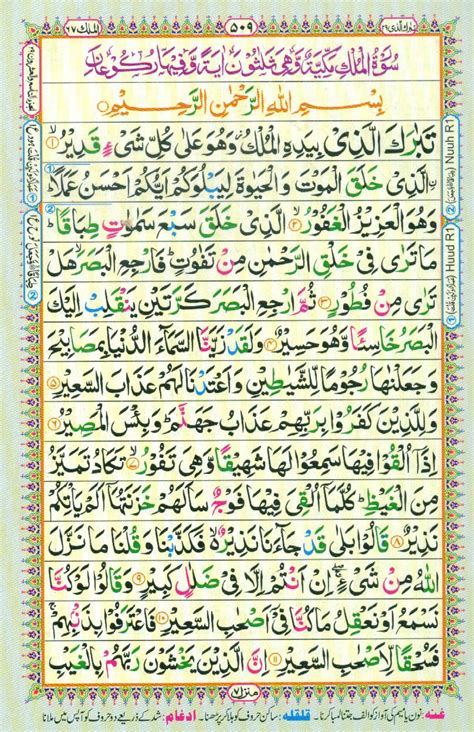 الملك ٦٧
٥٠٩
تبرك الذي ٢٩
سُوْرَةُ الْمُلْكِ مَكِّيَّةٌ وَّهِىَ ثَلٰثُوْنَ اٰيَةً وَّفِيْهَا رُكُوْعَانِ
بِسْمِ اللّٰهِ الرَّحْمٰنِ الرَّحِيْمِ
تَبٰرَكَ الَّذِىْ بِيَدِهِ الْمُلْكُ وَهُوَ عَلٰى كُلِّ شَىْءٍ قَدِيْرُ ۙ﴿۱﴾
اۨلَّذِىْ خَلَقَ الْمَوْتَ وَالْحَيٰوةَ لِيَبْلُوَكُمْ اَيُّكُمْ اَحْسَنُ عَمَلًا ؕ
وَهُوَ الْعَزِيْزُ الْغَفُوْرُ ۙ﴿۲﴾ الَّذِىْ خَلَقَ سَبْعَ سَمٰوٰتٍ طِبَاقًا ؕ
مَا تَرٰى فِىْ خَلْقِ الرَّحْمٰنِ مِنْ تَفٰوُتٍ ؕ فَارْجِعِ الْبَصَرَ ۙ هَلْ
تَرٰى مِنْ فُطُوْرٍ ﴿۳﴾ ثُمَّ ارْجِعِ الْبَصَرَ كَرَّتَيْنِ يَنْقَلِبْ اِلَيْكَ
الْبَصَرُ خَاسِئًا وَّهُوَ حَسِيْرٌ ﴿۴﴾ وَلَقَدْ زَيَّنَّا السَّمَآءَ الدُّنْيَا بِمَصَابِيْحَ
وَجَعَلْنٰهَا رُجُوْمًا لِّلشَّيٰطِيْنِ وَاَعْتَدْنَا لَهُمْ عَذَابَ السَّعِيْرِ ﴿۵﴾
وَلِلَّذِيْنَ كَفَرُوْا بِرَبِّهِمْ عَذَابُ جَهَنَّمَ ؕ وَبِئْسَ الْمَصِيْرُ ﴿۶﴾
اِذَآ اُلْقُوْا فِيْهَا سَمِعُوْا لَهَا شَهِيْقًا وَّهِىَ تَفُوْرُ ۙ﴿۷﴾ تَكَادُ تَمَيَّزُ
مِنَ الْغَيْظِ ؕ كُلَّمَآ اُلْقِىَ فِيْهَا فَوْجٌ سَاَلَهُمْ خَزَنَتُهَآ اَلَمْ يَاْتِكُمْ
نَذِيْرٌ ﴿۸﴾ قَالُوْا بَلٰى قَدْ جَآءَنَا نَذِيْرٌ ۙ فَكَذَّبْنَا وَقُلْنَا مَا نَزَّلَ
اللّٰهُ مِنْ شَىْءٍ ۖۚ اِنْ اَنْتُمْ اِلَّا فِىْ ضَلٰلٍ كَبِيْرٍ ﴿۹﴾ وَقَالُوْا لَوْ كُنَّا
نَسْمَعُ اَوْ نَعْقِلُ مَا كُنَّا فِىْۤ اَصْحٰبِ السَّعِيْرِ ﴿۱۰﴾ فَاعْتَرَفُوْا بِذَنْۢبِهِمْ ۚ
فَسُحْقًا لِّاَصْحٰبِ السَّعِيْرِ ﴿۱۱﴾ اِنَّ الَّذِيْنَ يَخْشَوْنَ رَبَّهُمْ بِالْغَيْبِ
منزل ۷
غنه: نون یا میم کی آواز کو الف جتنا لمبا کرنا۔ قلقله: ساکن حروف کو ہلا کر پڑھنا۔ ادغام: شد کے ذریعے دو حروف کو آپس میں ملانا
Nuuh R1
Huud R1